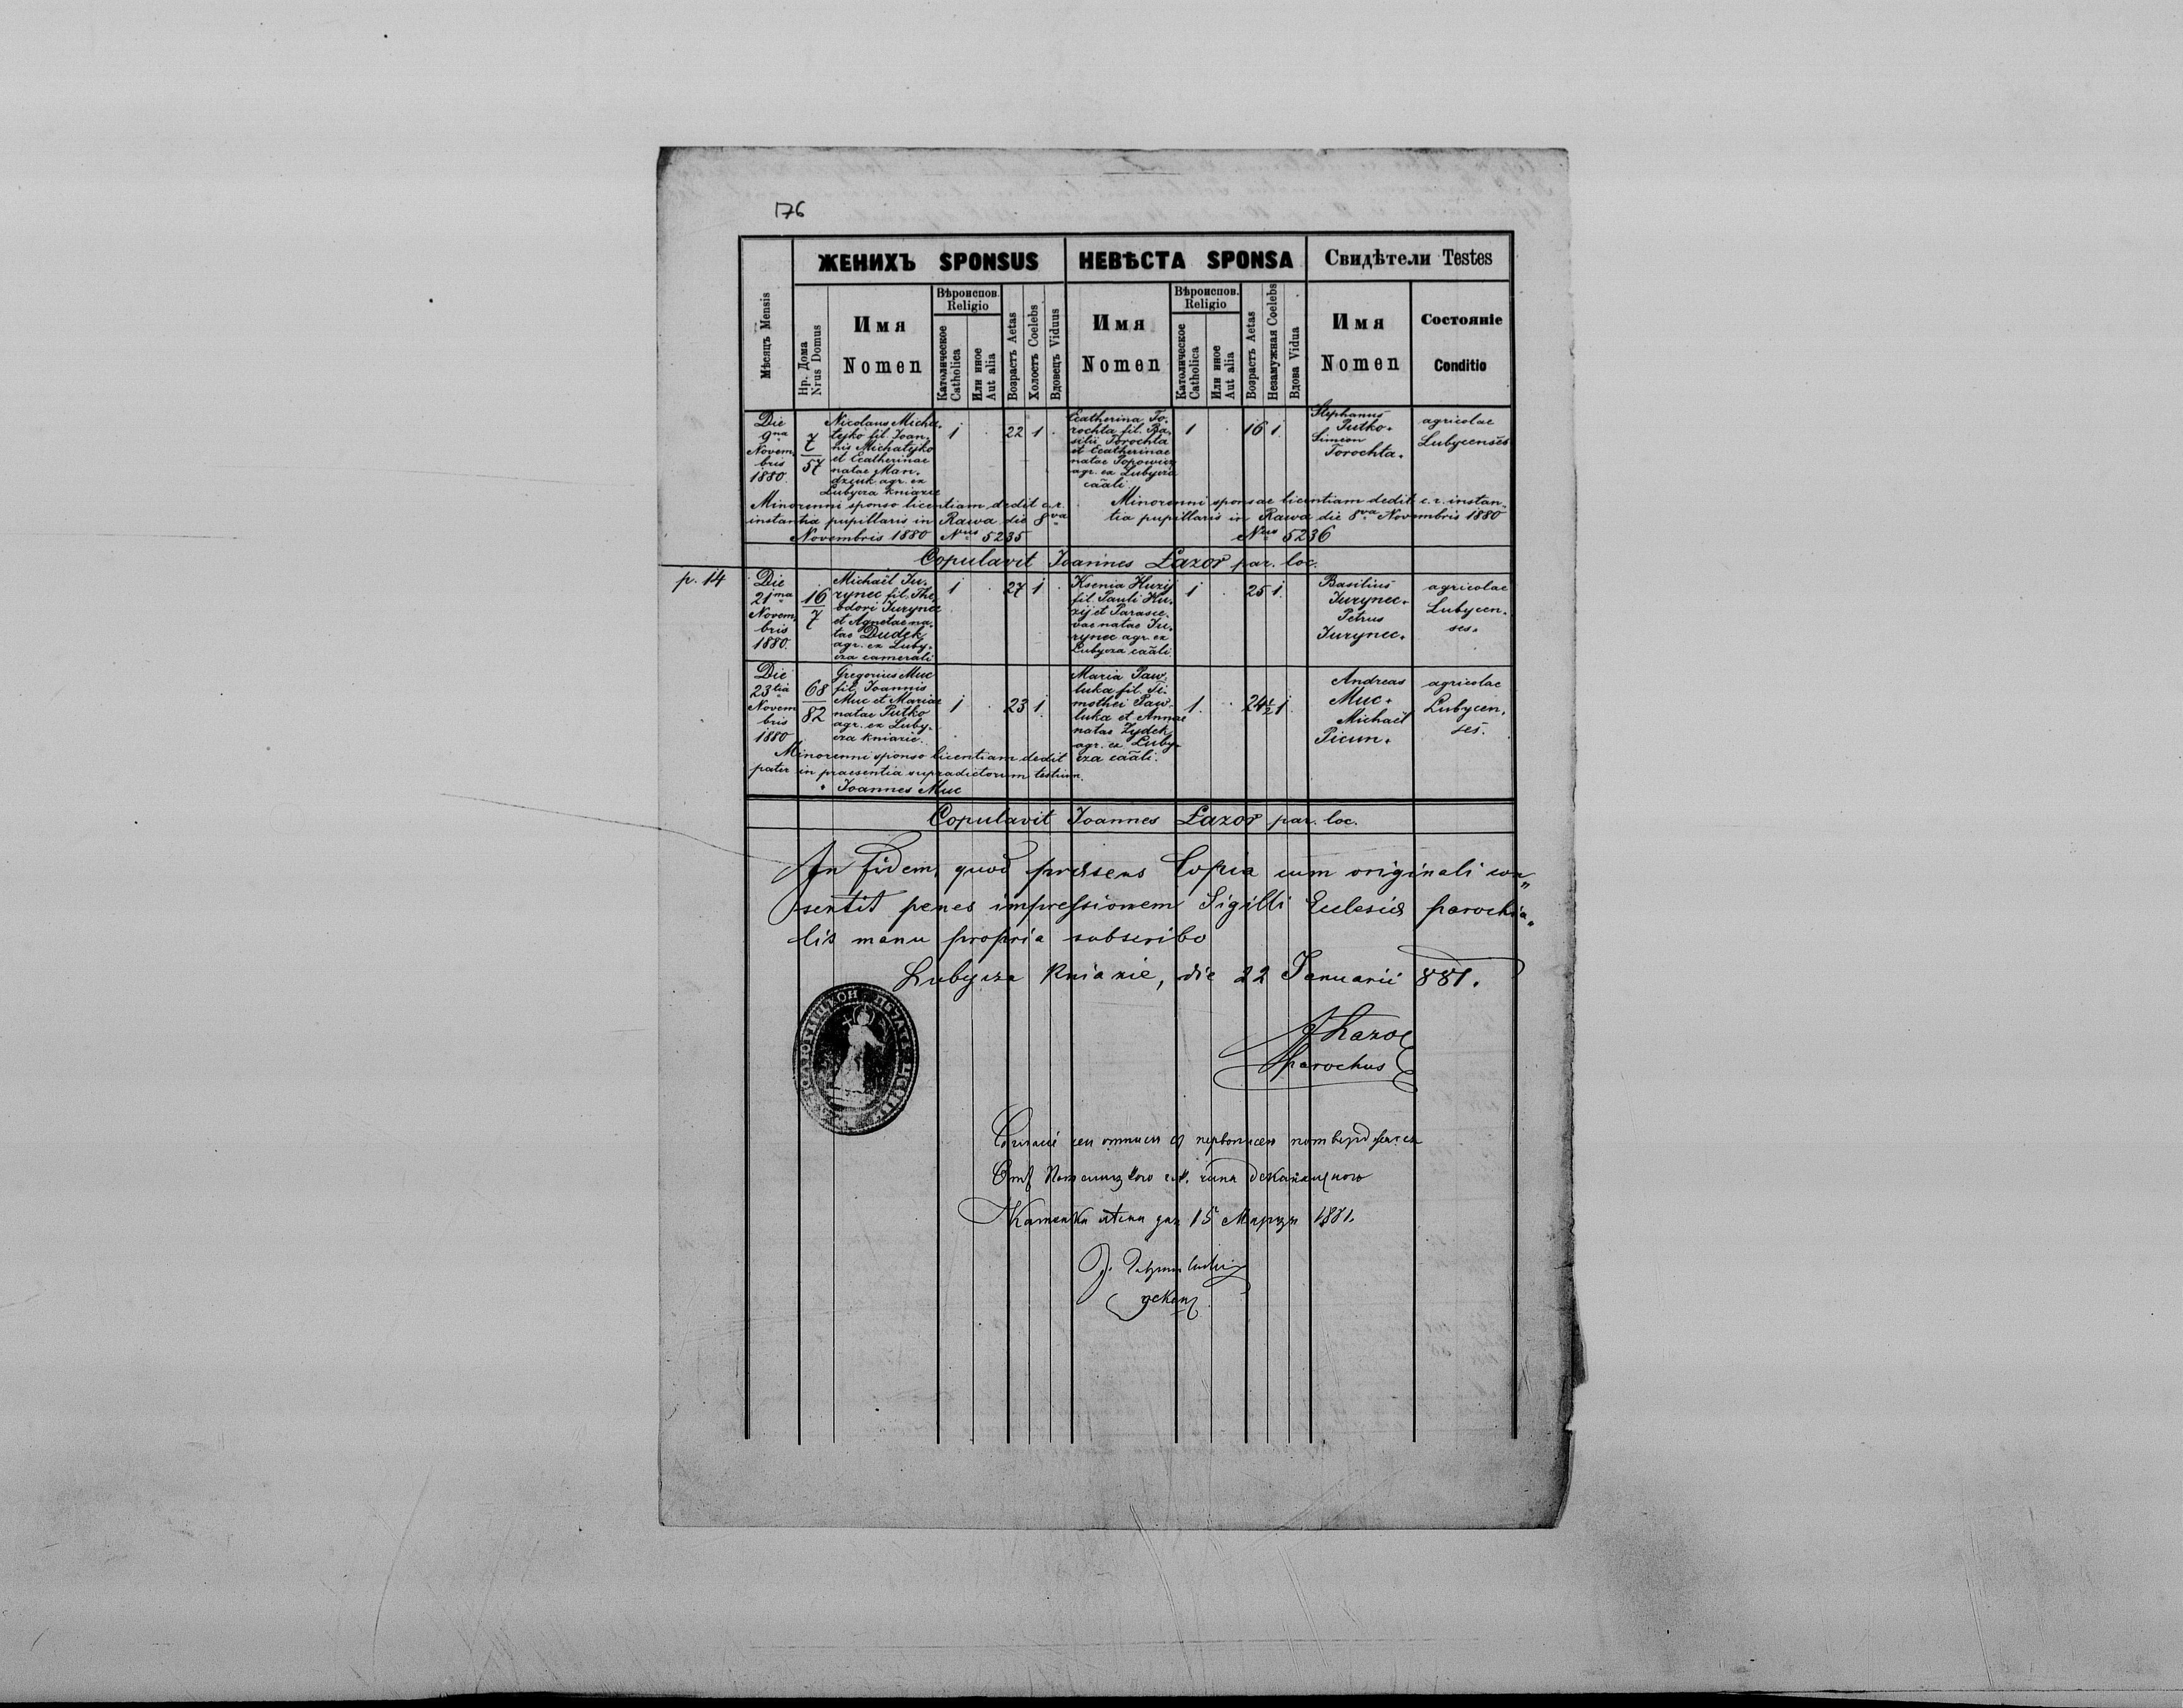 176
ЖЕНИХЪ SPONSUS
НЕВѢСТА SPONSA
Свидѣтели Testes
Мѣсяцъ Mensis
Нр. Дома
Nrus Domus
Имя
Nomen
Вѣроиспов.
Religio
Католическое
Catholica
Или иное
Aut alia
Возрастъ Aetas
Холостъ Coelebs
Вдовецъ Viduus
Имя
Nomen
Вѣроиспов.
Religio
Католическое
Catholica
Или иное
Aut alia
Возрастъ Aetas
Незамужная Coelebs
Вдова Vidua
Имя
Nomen
Состояніе
Conditio
Die
9na
Novem.
bris
1880.
7
57
Nicolaus Micha.
tejko fil. Joan.
nis Michatejko
et Ecatherinae
natae Man.
dziuk agr. ex
Lubycza kniazie
1 . 22 1 .
Ecatherina To.
rochta fil. Ba.
silii Torochta
et Ecatherinae
natae Popowicz
agr. ex Lubycza
caãli
1 . 16 1
Stephanus
Putko.
Simeon
Torochta.
agricolae
Lubycenses
Minorenni sponso licentiam dedit c.r.
instantia pupillaris in Rawa die 8va
Novembris 1880 Nrus 5235
Minorenni sponsae licentiam dedit c.r. instan
tia pupillaris in Rawa die 8va Novembris 1880
Nrus 5236
Copulavit Joannes Łazor par. loc.
p. 14
Die
21ma
Novem.
bris
1880.
16
7
Michaël Ju.
rynec fil. The.
odori Jurynec
et Agnetae na.
tae Dudek
agr. ex Luby.
cza camerali
1 . 27 1 .
Ksenia Huzij
fil. Pauli Hu.
zij et Parasce.
vae natae Ju.
rynec agr. ex
Lubycza caãli
1 . 25 1
Basilius
Jurynec.
Petrus
Jurynec.
agricolae
Lubycen.
ses.
Die
23tia
Novem
bris
1880
68
82
Gregorius Muc
fil. Joannis
Muc et Mariae
natae Putko
agr. ex Luby.
cza kniazie.
1 . 23 1
Maria Paw.
luka fil. Ti.
mothei Paw.
luka et Annae
natae Zydek
agr. ex Luby.
cza caãli.
1. . 24½ 1
Andreas
Muc.
Michaël
Picun.
agricolae
Lubycen.
ses.
Minorenni sponso licentiam dedit
pater in praesentia supradictorum testium.
Joannes Muc
Copulavit Joannes Łazor par. loc.
In fidem, quod præsens Copia cum originali con„
sentit penes impressionem Sigilli Ecclesiæ parochia„
lis manu propria subscribo
Lubycza Kniazie, die 22 Januarii 881.
JŁazor
parochus
сей
Отъ
15 Марця 1881.
декан